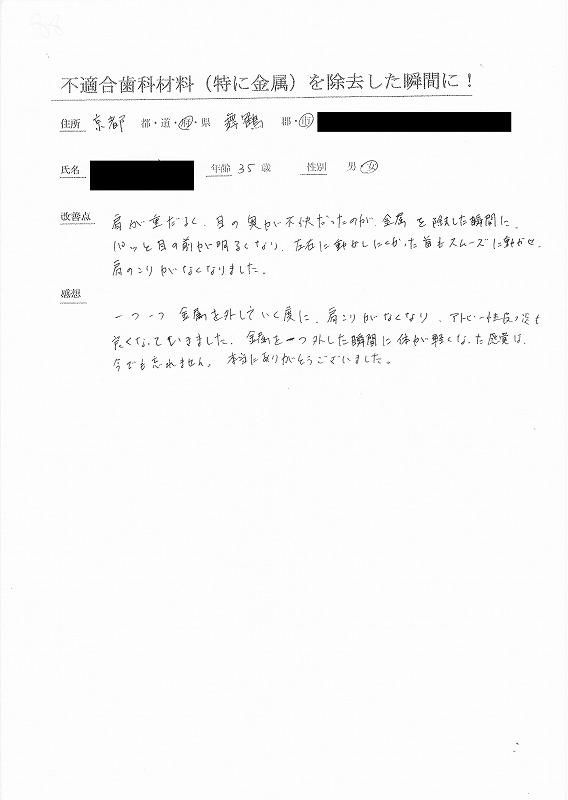 不適合歯科材料（特に金属）を除去した瞬間に！
住所 京都 都・道・府・県 舞鶴 郡・市
氏名 年齢 35 歳 性別 男・女
改善点 肩が重だるく、目の奥が不快だったのが、金属を除去した瞬間に、
パッと目の前が明るくなり、左右に動かしにくかった首もスムーズに動かせ、
肩のこりがなくなりました。
感想
一つ一つ金属を外していく度に、肩こりがなくなり、アトピー性皮フ炎も
良くなってきました。金属を一つ外した瞬間に体が軽くなった感覚は、
今でも忘れません。本当にありがとうございました。